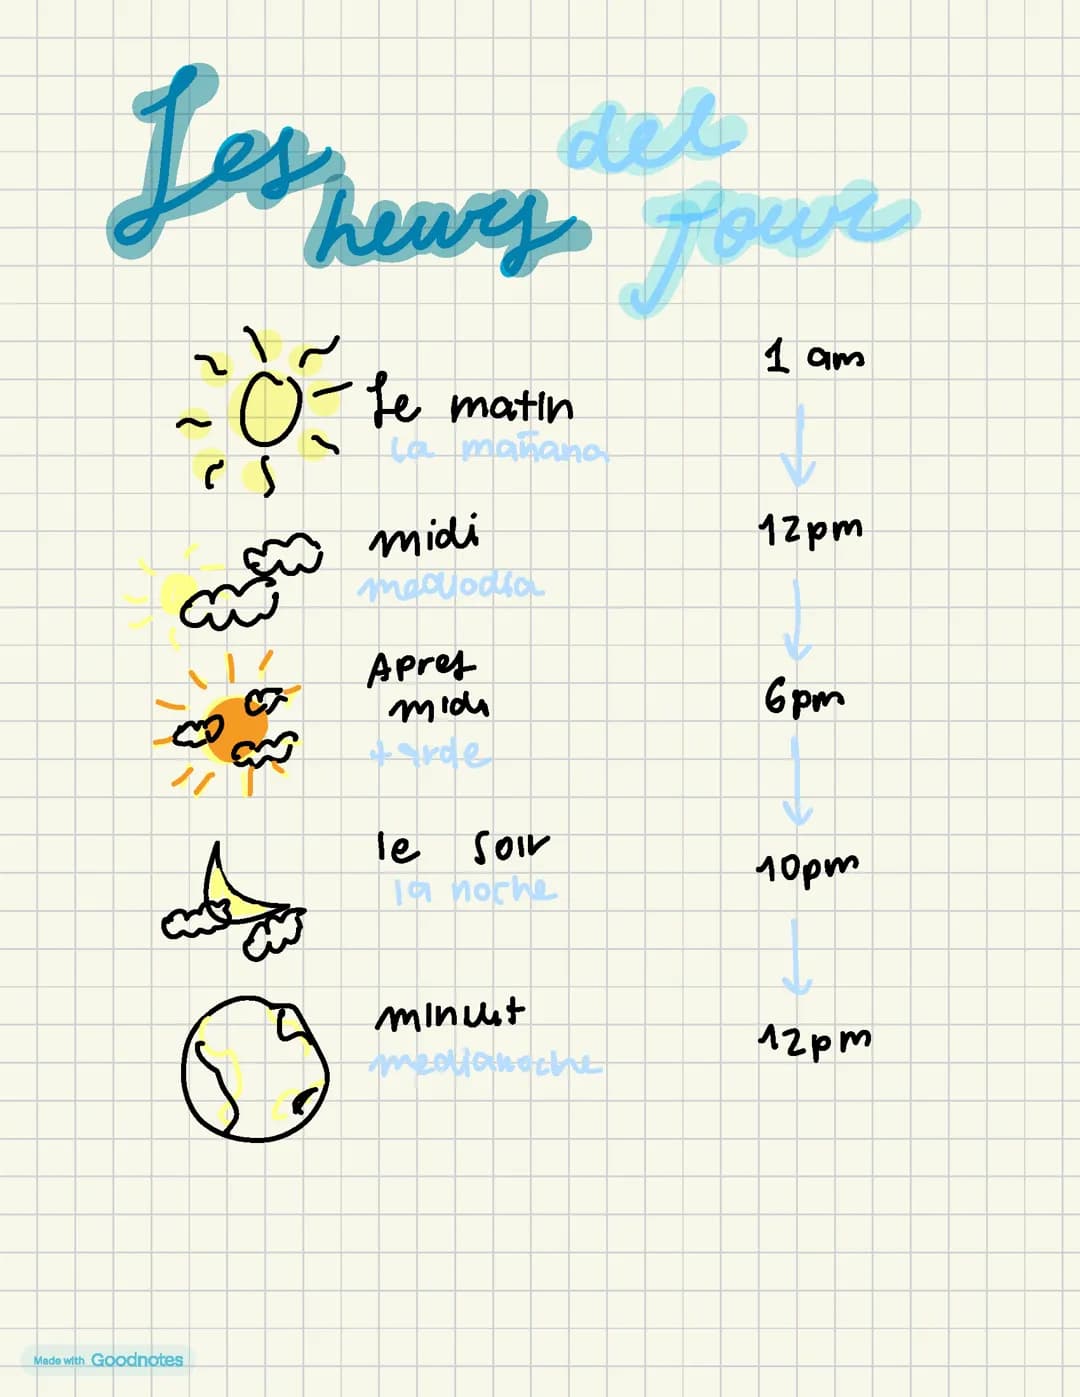 Les del
heurs Jour
1 am
Le matin
la mañana
midi
12pm
mediodía
Apres
midi
6pm
tarde
le soir
10pm
la noche
minuit
12pm
medianoche
Made with Goodnotes